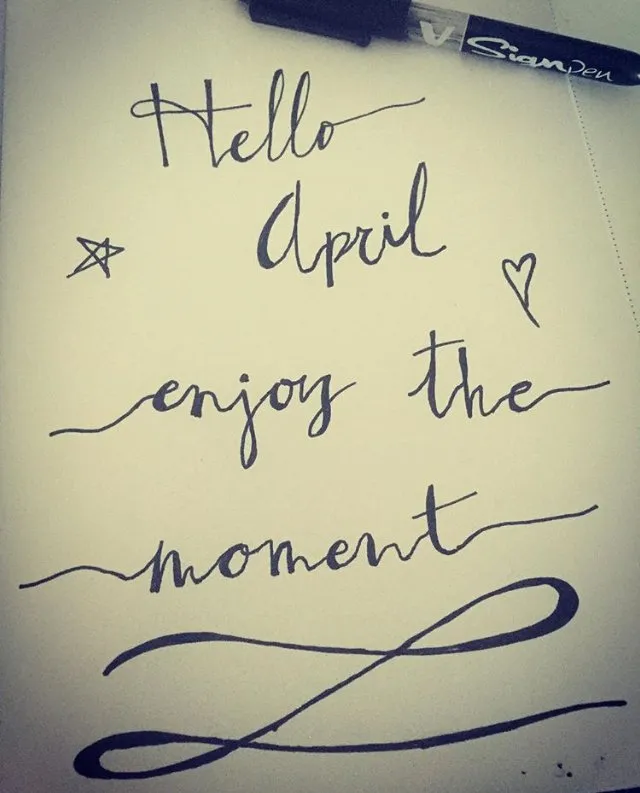 Sign pen
Hello
April
enjoy the
moment